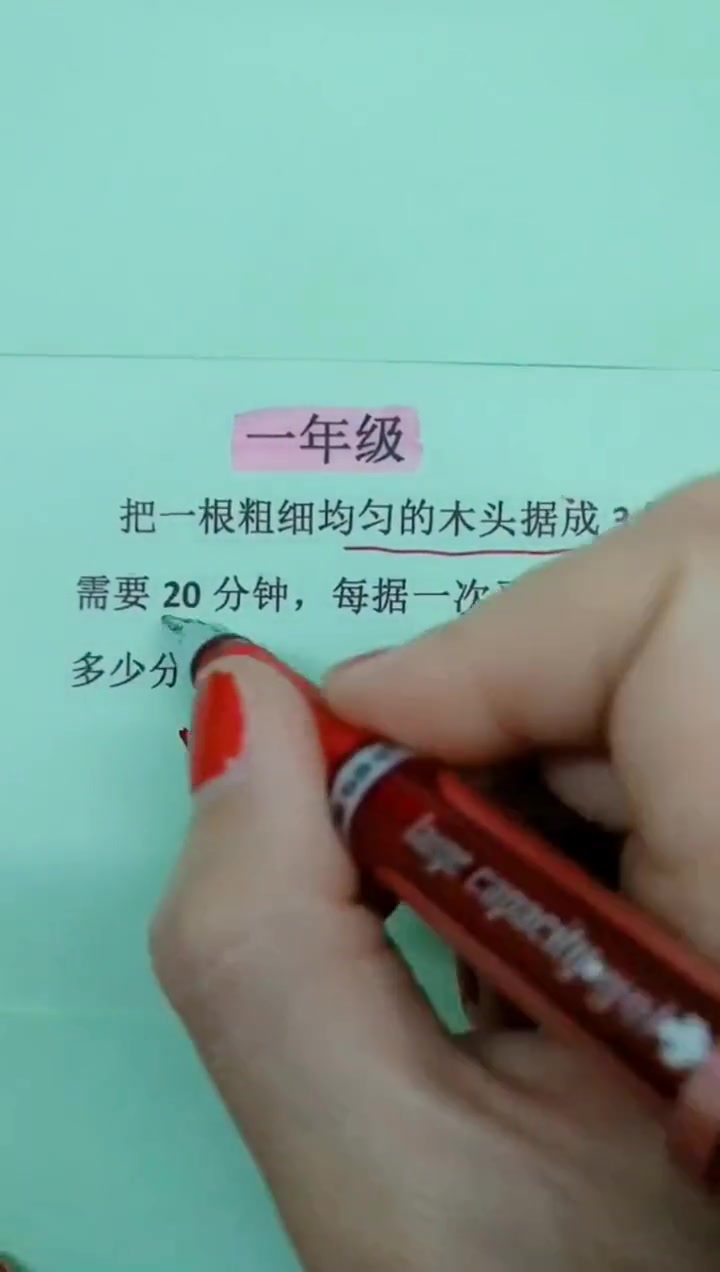 一年级
把一根粗细均匀的木头据成 3
需要 20 分钟，每据一次
多少分
large capacity